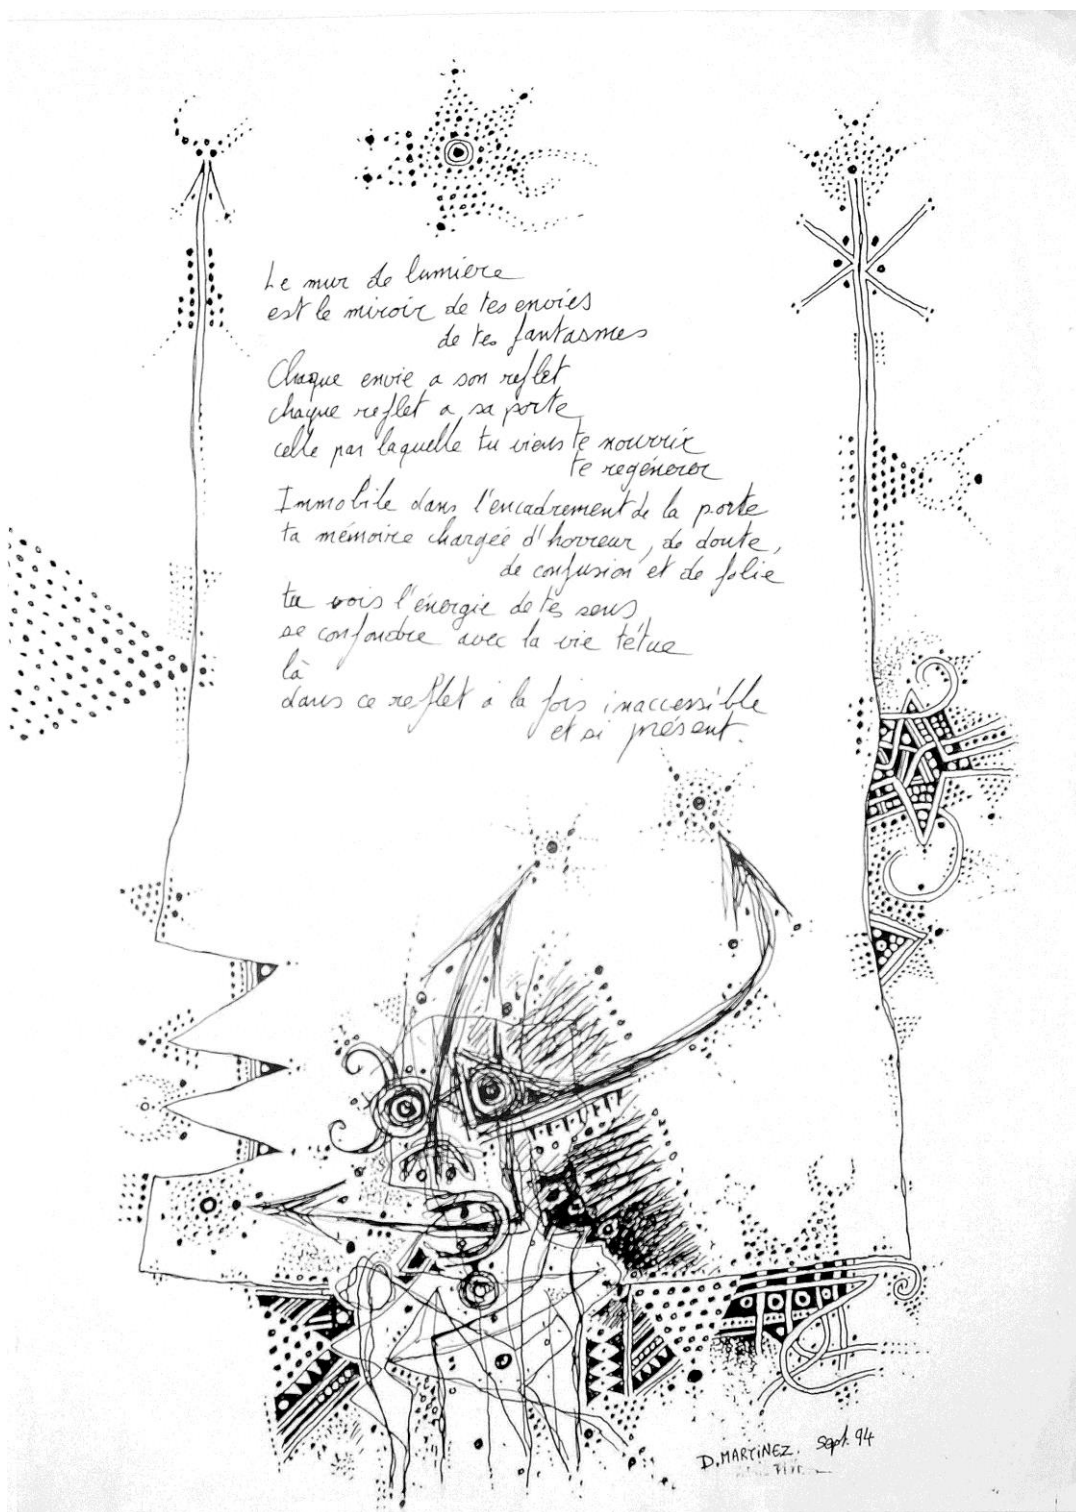 Le mur de lumière
est le miroir de tes envies
de tes fantasmes
Chaque envie a son reflet
chaque reflet a sa porte
celle par laquelle tu viens te nourrir
te regénérer
Immobile dans l'encadrement de la porte
ta mémoire chargée d'horreur, de doute,
de confusion et de folie
tu vois l'énergie de tes sens
se confondre avec la vie têtue
là
dans ce reflet à la fois inaccessible
et si présent.
D. MARTINEZ. Sept. 94